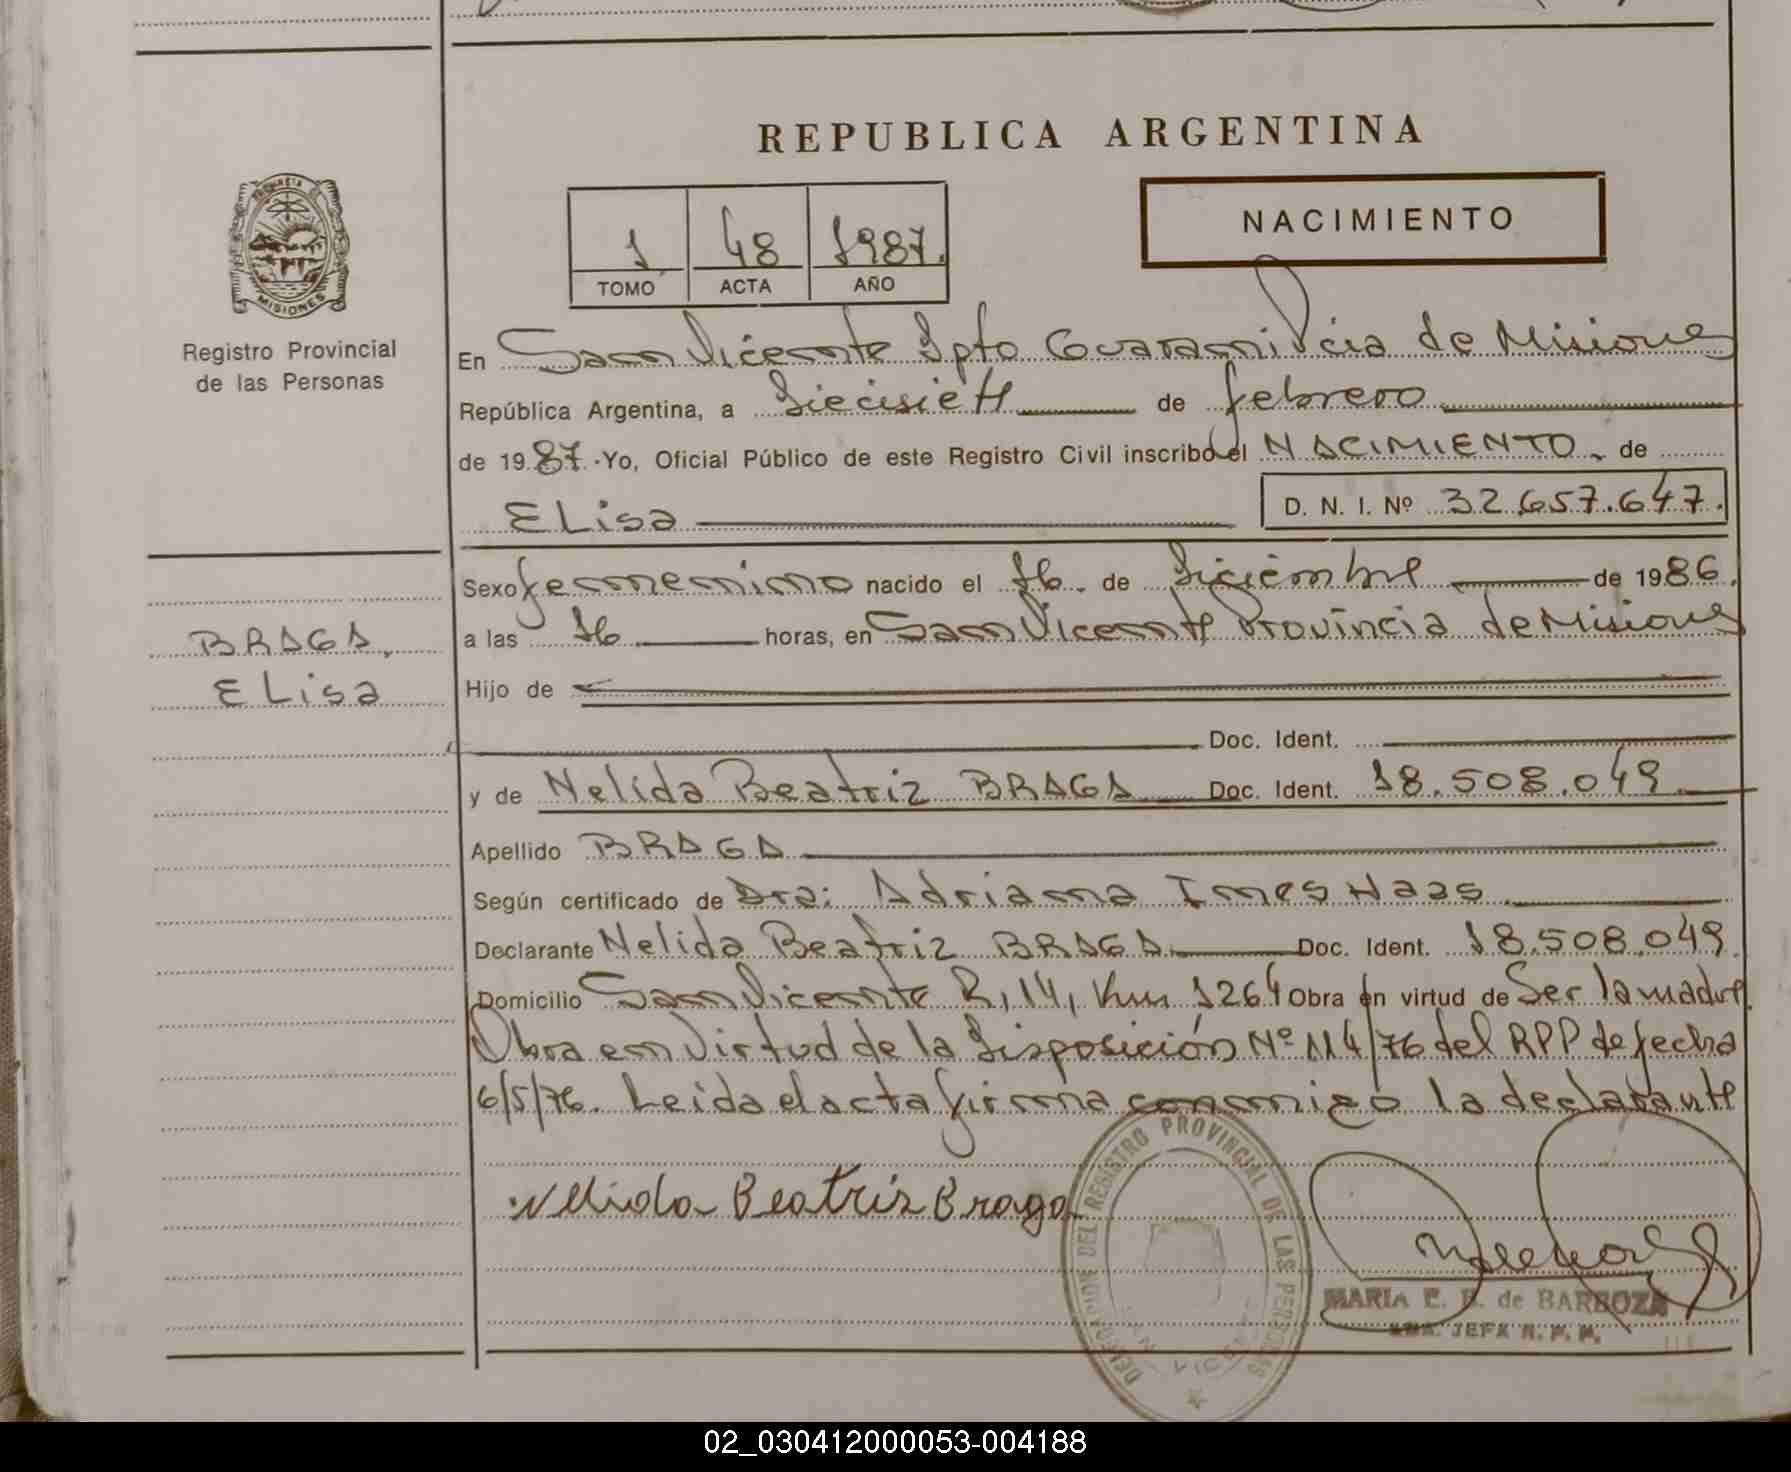 REPUBLICA ARGENTINA
NACIMIENTO
1 48 1987.
TOMO ACTA AÑO
MISIONES
Registro Provincial
de las Personas
En San Vicente Dpto Guarani Pcia de Misiones
República Argentina, a Diecisiete de febrero
de 1987.-Yo, Oficial Público de este Registro Civil inscribo el NACIMIENTO de
ELisa D. N. I. Nº 32.657.647.
Sexo femenino nacido el 16 de Diciembre de 1986.
a las 16 horas, en San Vicente Provincia de Misiones
BRAGA,
ELisa
Hijo de
Doc. Ident.
y de Nelida Beatriz BRAGA Doc. Ident. 18.508.049
Apellido BRAGA
Según certificado de Dra: Adriana Ines Haas
Declarante Nelida Beatriz BRAGA Doc. Ident. 18.508.049
Domicilio San Vicente R, 14, Km 1264 Obra en virtud de Ser la madre.
Obra en Virtud de la Disposición Nº 114/76 del RPP de fecha
6/5/76. Leida el acta firma conmigo la declarante
Nelida Beatriz Braga
DELEGACION DEL REGISTRO PROVINCIAL DE LAS PERSONAS
SAN VICENTE
MARIA E. B. de BARBOZA
JEFA R. P. P.
02_030412000053-004188